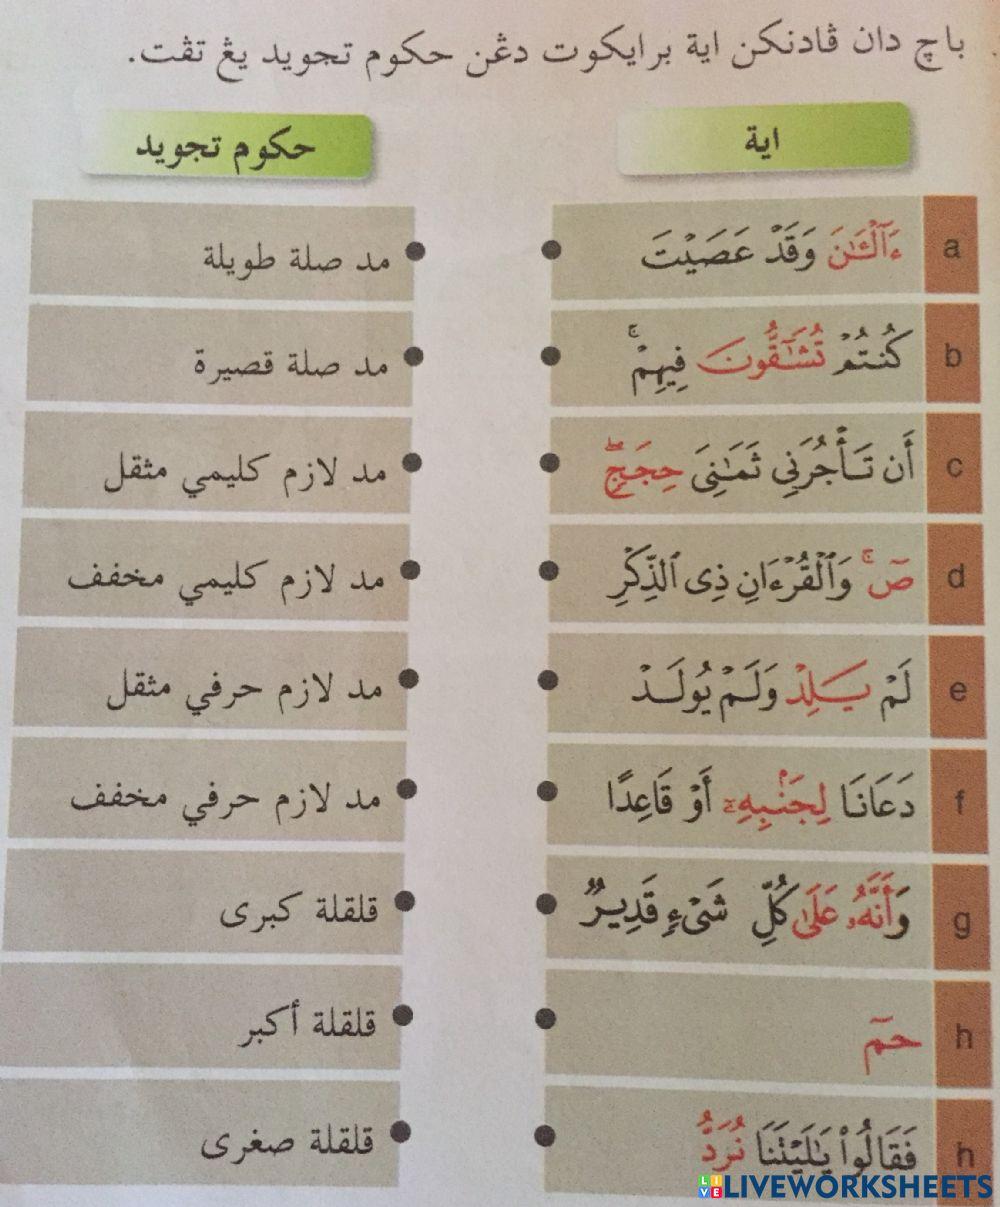 باچ دان ڤادنكن اية برايكوت دڠن حكوم تجويد يڠ تڤت.
اية
حكوم تجويد
a ءَآلْـَٰٔنَ وَقَدْ عَصَيْتَ
مد صلة طويلة
b كُنتُمْ تُشَـٰٓقُّونَ فِيهِمْ ۚ
مد صلة قصيرة
c أَن تَأْجُرَنِى ثَمَـٰنِىَ حِجَجٍ ۖ
مد لازم كليمي مثقل
d صٓ ۚ وَٱلْقُرْءَانِ ذِى ٱلذِّكْرِ
مد لازم كليمي مخفف
e لَمْ يَلِدْ وَلَمْ يُولَدْ
مد لازم حرفي مثقل
f دَعَانَا لِجَنۢبِهِۦٓ أَوْ قَاعِدًا
مد لازم حرفي مخفف
g وَأَنَّهُۥ عَلَىٰ كُلِّ شَىْءٍ قَدِيرٌ
قلقلة كبرى
h حمٓ
قلقلة أكبر
h فَقَالُوا۟ يَـٰلَيْتَنَا نُرَدُّ
قلقلة صغرى
LIVEWORKSHEETS